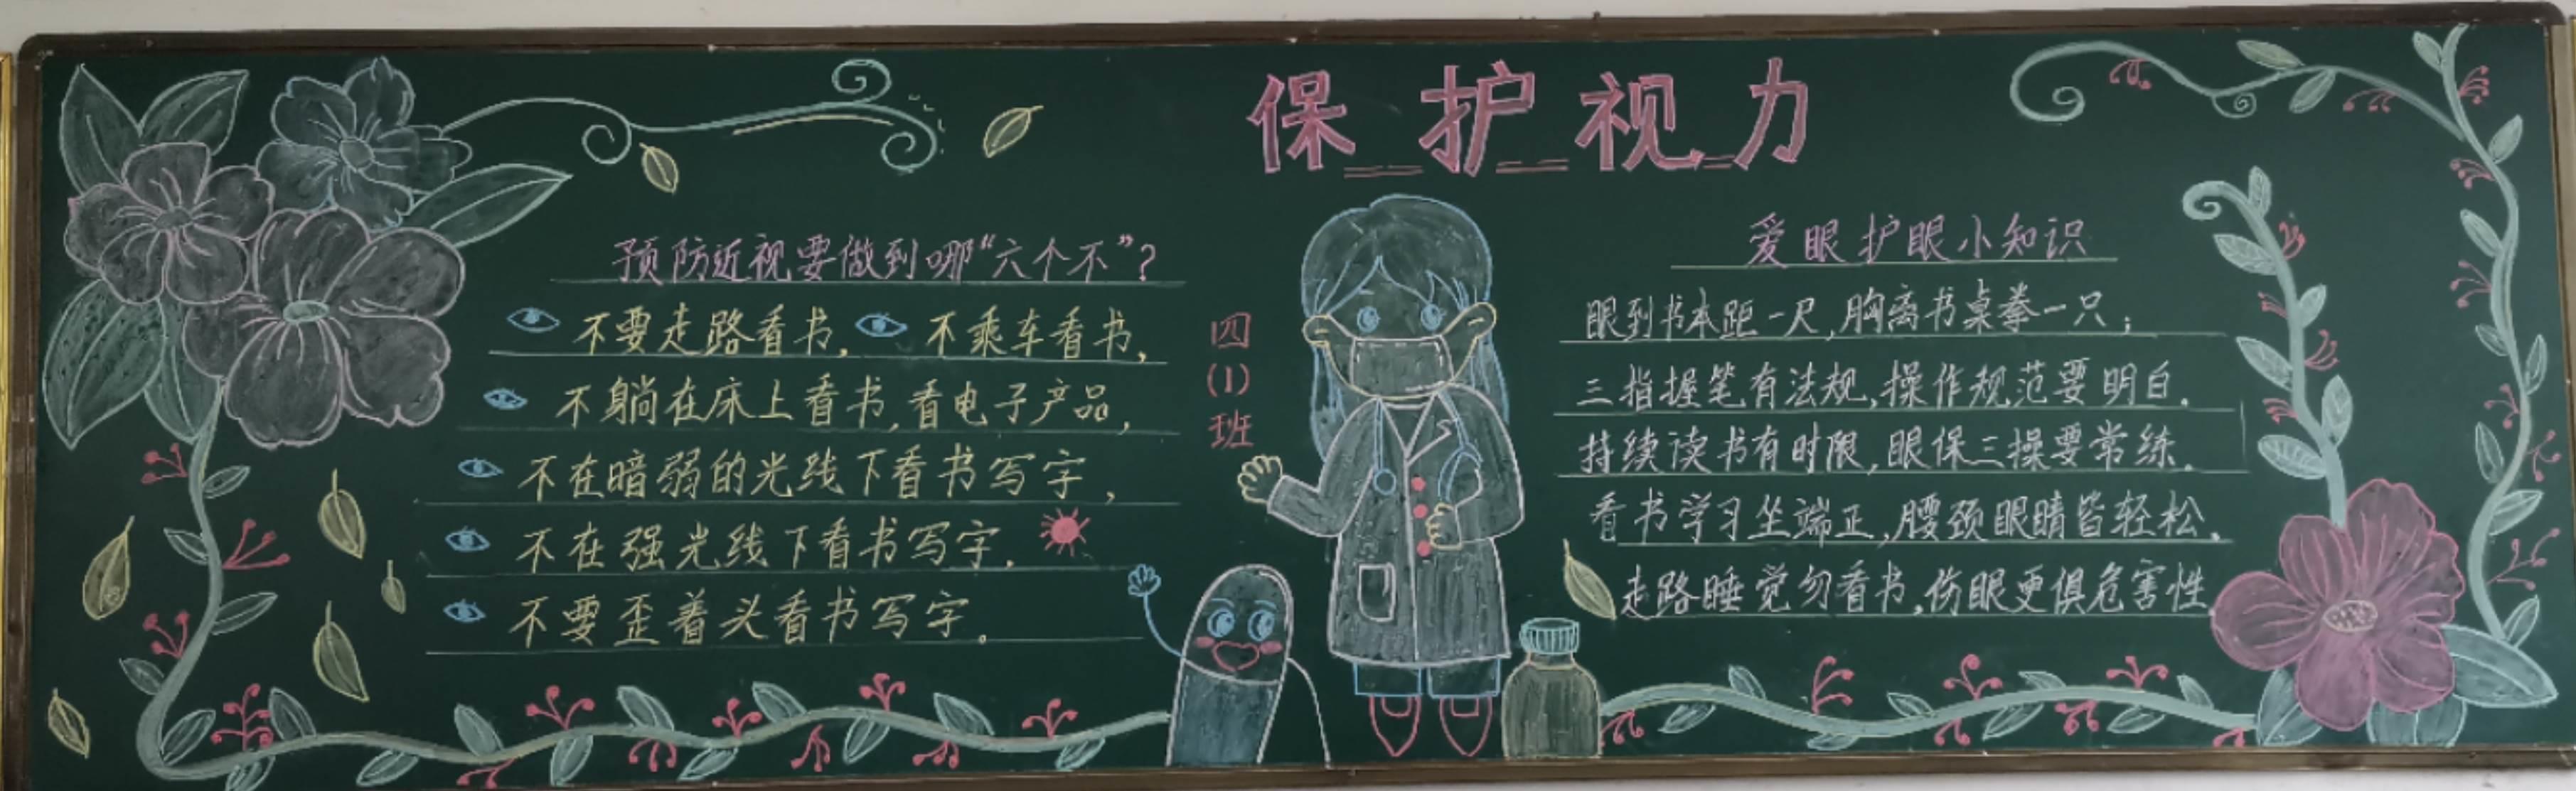 保护视力
预防近视要做到哪“六个不”?
不要走路看书, 不乘车看书,
不躺在床上看书,看电子产品,
不在暗弱的光线下看书写字,
不在强光线下看书写字.
不要歪着头看书写字。
四(1)班
爱眼护眼小知识
眼到书本距一尺,胸离书桌拳一只;
三指握笔有法规,操作规范要明白.
持续读书有时限,眼保三操要常练.
看书学习坐端正,腰颈眼睛皆轻松.
走路睡觉勿看书,伤眼更俱危害性.